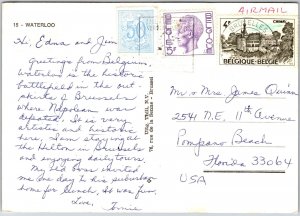 15 - WATERLOO
AIRMAIL
Hi, Edna and Jim
Greetings from Belgium,
Waterloo is the historic
battlefield in the out-
skirts of Brussels
where Napoleon was
defeated. It is very
artistic and historic
here. I am staying at
the Hilton in Brussels
and enjoying daily tours.
My invited
me one day to his suburban
home for lunch. It was fun.
Love,
BELGIE-BELGIQUE
Mr & Mrs James Quinn
2541 N.E. 11th Avenue
Pompano Beach
Florida 33064
USA